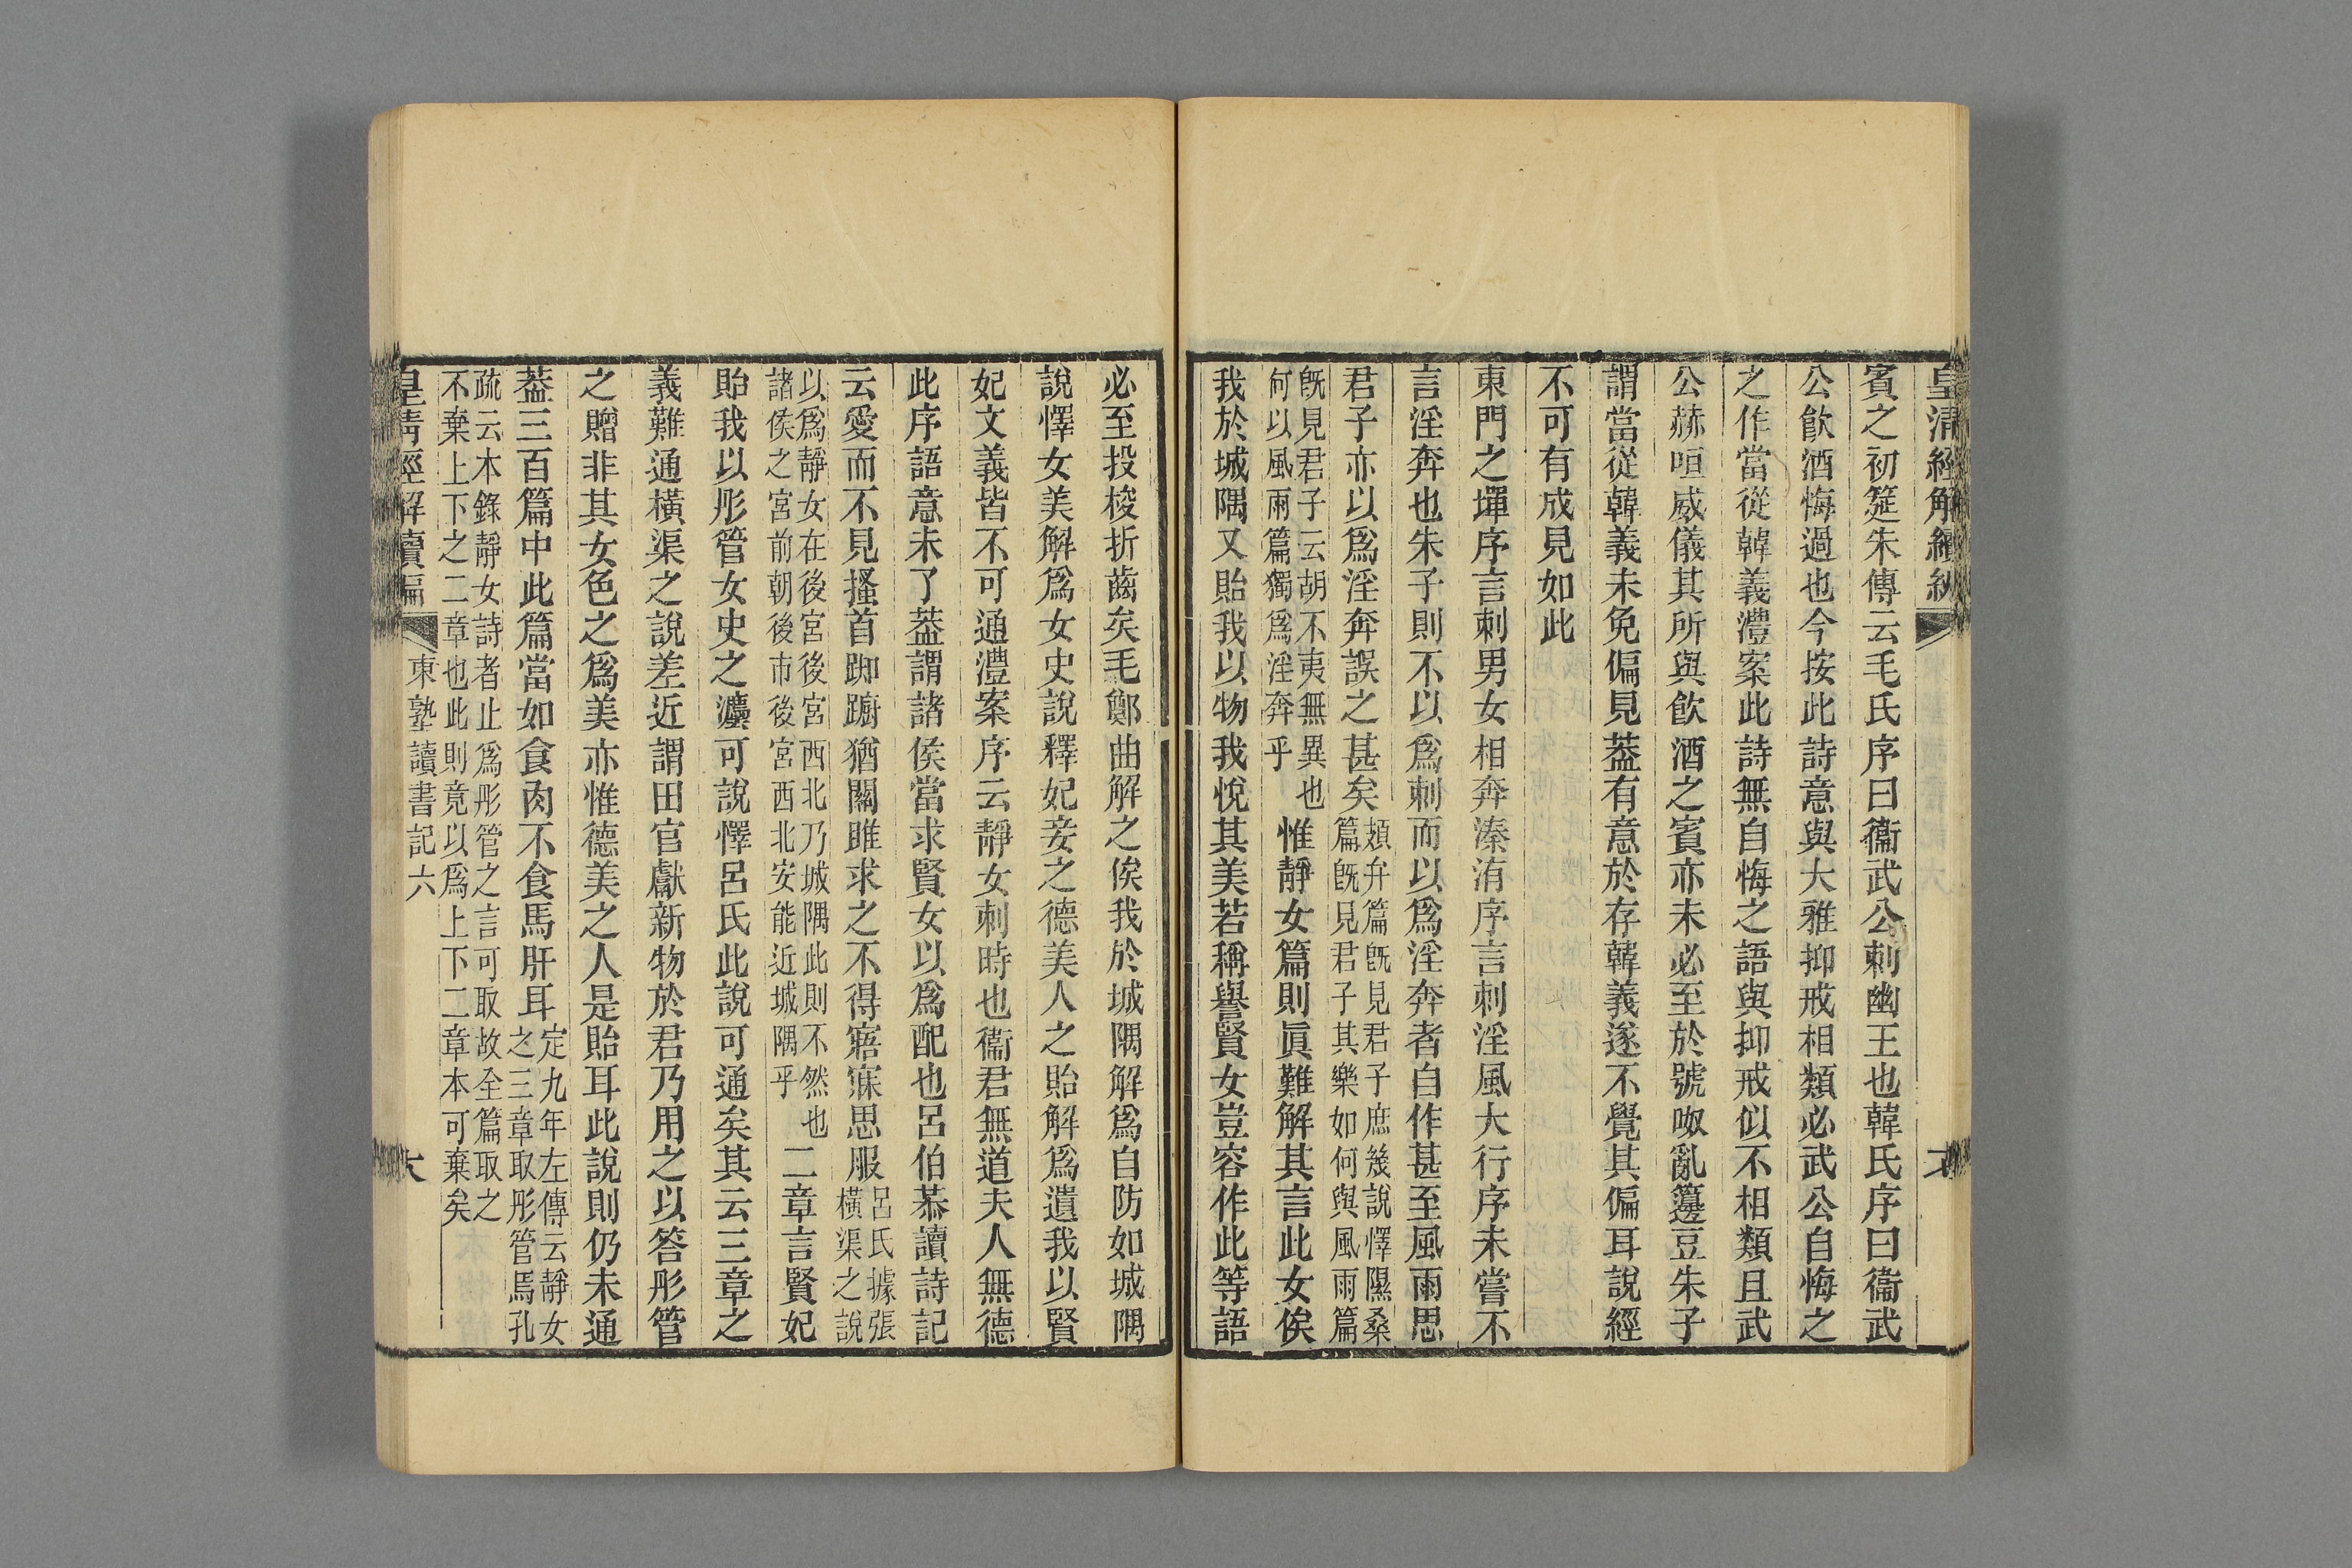 皇清經解續編
賓之初筵朱傳云毛氏序曰衞武公刺幽王也韓氏序曰衞武
公飲酒悔過也今按此詩意與大雅抑戒相類必武公自悔之
之作當從韓義澧案此詩無自悔之語與抑戒似不相類且武
公赫咺威儀其所與飲酒之賓亦未必至於號呶亂籩豆朱子
謂當從韓義未免偏見葢有意於存韓義遂不覺其偏耳說經
不可有成見如此
東門之墠序言刺男女相奔溱洧序言刺淫風大行序未嘗不
言淫奔也朱子則不以爲刺而以爲淫奔者自作甚至風雨思
君子亦以爲淫奔誤之甚矣頍弁篇旣見君子庶幾說懌隰桑篇旣見君子其樂如何與風雨篇
旣見君子云胡不夷無異也何以風雨篇獨爲淫奔乎惟靜女篇則眞難解其言此女俟
我於城隅又貽我以物我悅其美若稱譽賢女豈容作此等語
必至投梭折齒矣毛鄭曲解之俟我於城隅解爲自防如城隅
說懌女美解爲女史說釋妃妾之德美人之貽解爲遺我以賢
妃文義皆不可通澧案序云靜女刺時也衞君無道夫人無德
此序語意未了葢謂諸侯當求賢女以爲配也呂伯恭讀詩記
云愛而不見搔首踟躕猶關雎求之不得寤寐思服呂氏據張橫渠之說
以爲靜女在後宮後宮西北乃城隅此則不然也諸侯之宮前朝後市後宮西北安能近城隅乎二章言賢妃
貽我以彤管女史之灋可說懌呂氏此說可通矣其云三章之
義難通橫渠之說差近謂田官獻新物於君乃用之以答彤管
之贈非其女色之爲美亦惟德美之人是貽耳此說則仍未通
葢三百篇中此篇當如食肉不食馬肝耳定九年左傳云靜女之三章取彤管焉孔
疏云本錄靜女詩者止爲彤管之言可取故全篇取之不棄上下之二章也此則竟以爲上下二章本可棄矣
皇淸經解續編 東塾讀書記六